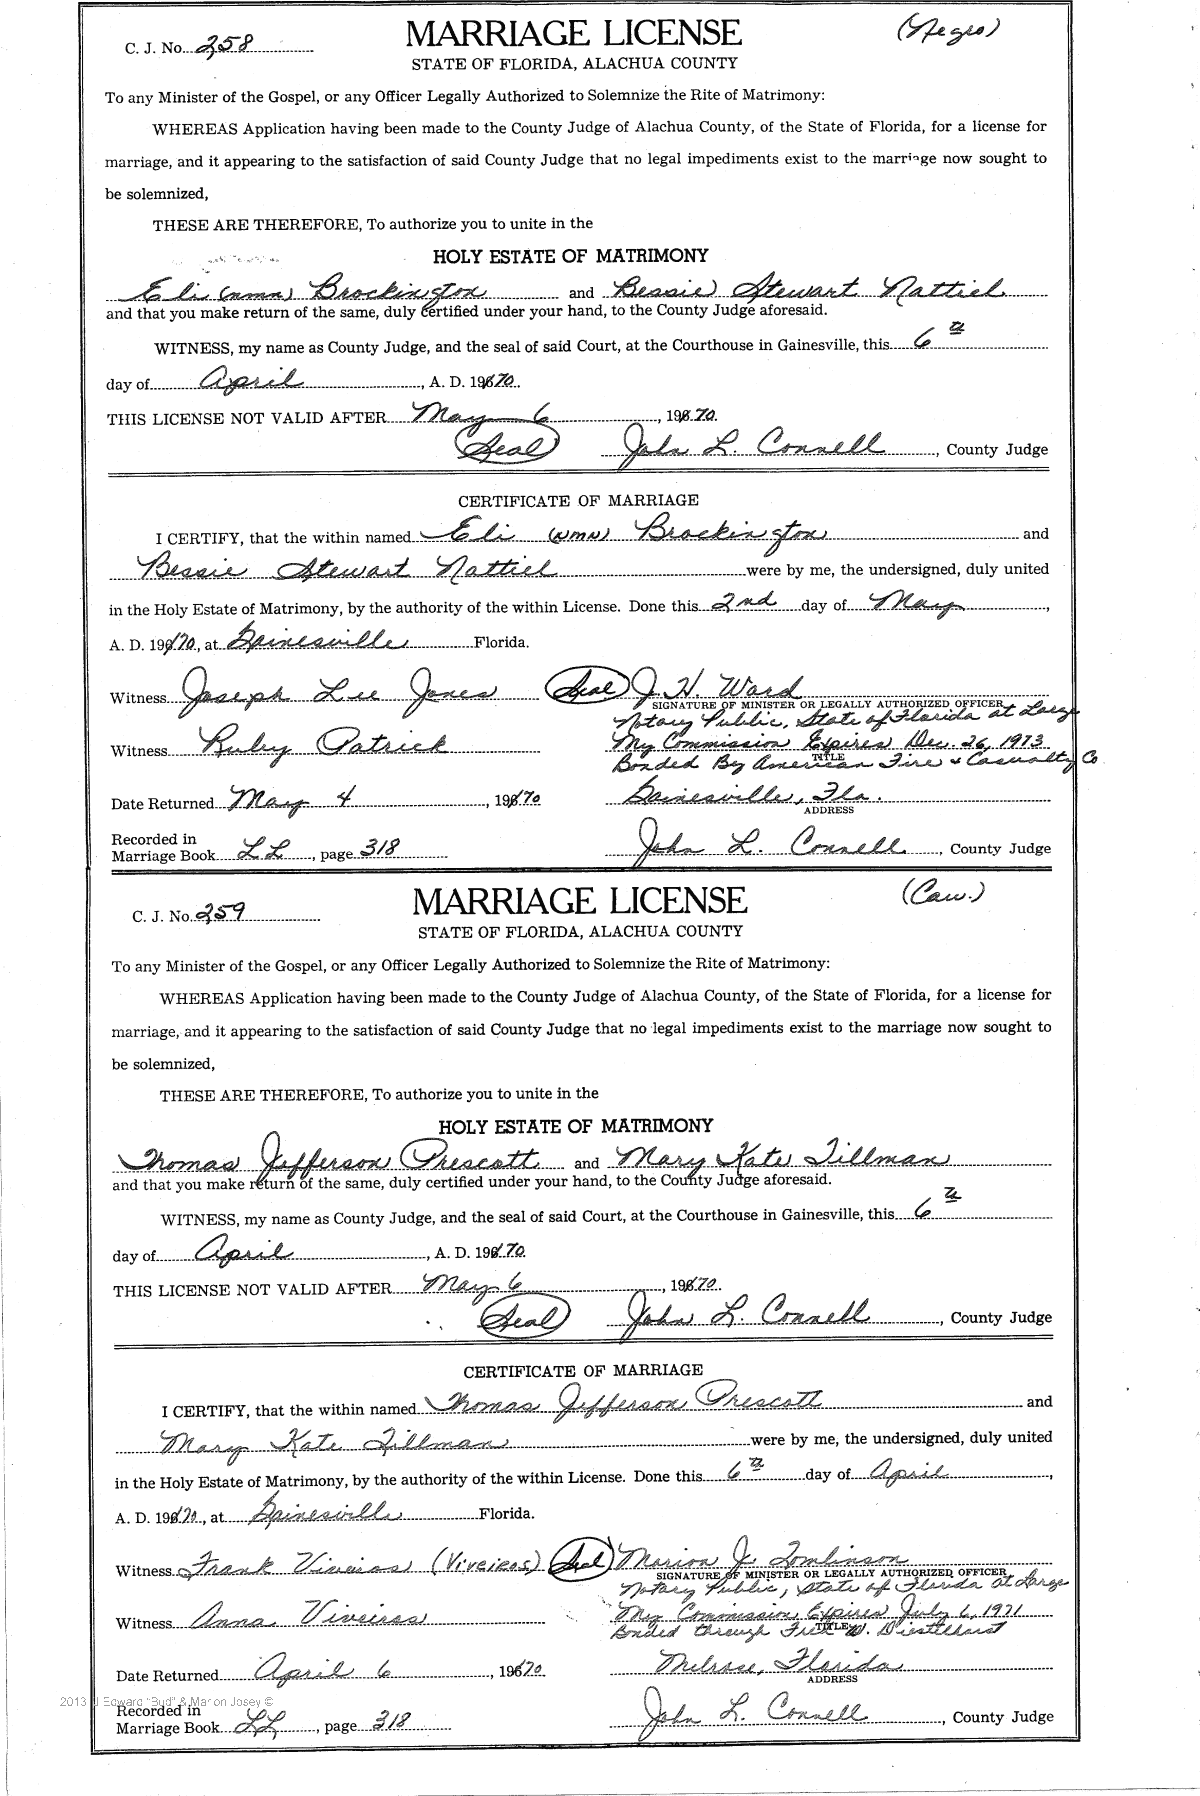 C. J. No. 258
MARRIAGE LICENSE
(Negro)
STATE OF FLORIDA, ALACHUA COUNTY
To any Minister of the Gospel, or any Officer Legally Authorized to Solemnize the Rite of Matrimony:
WHEREAS Application having been made to the County Judge of Alachua County, of the State of Florida, for a license for
marriage, and it appearing to the satisfaction of said County Judge that no legal impediments exist to the marriage now sought to
be solemnized,
THESE ARE THEREFORE, To authorize you to unite in the
HOLY ESTATE OF MATRIMONY
Eli (nmn) Brockington and Bessie Stewart Nattiel
and that you make return of the same, duly certified under your hand, to the County Judge aforesaid.
WITNESS, my name as County Judge, and the seal of said Court, at the Courthouse in Gainesville, this 6th
day of April, A. D. 1970.
THIS LICENSE NOT VALID AFTER May 6, 1970.
(Seal) John L. Connell, County Judge
CERTIFICATE OF MARRIAGE
I CERTIFY, that the within named Eli (NMN) Brockington and
Bessie Stewart Nattiel were by me, the undersigned, duly united
in the Holy Estate of Matrimony, by the authority of the within License. Done this 2nd day of May,
A. D. 1970, at Gainesville Florida.
Witness Joseph Lee Jones (Seal) J. H. Ward
SIGNATURE OF MINISTER OR LEGALLY AUTHORIZED OFFICER
Notary Public, State of Florida at Large
Witness Ruby Patrick My Commission Expires Dec. 26, 1973
TITLE
Bonded By American Fire & Casualty Co
Date Returned May 4, 1970 Gainesville, Fla.
ADDRESS
Recorded in
Marriage Book LL, page 318 John L. Connell, County Judge
C. J. No. 259
MARRIAGE LICENSE
(Cau.)
STATE OF FLORIDA, ALACHUA COUNTY
To any Minister of the Gospel, or any Officer Legally Authorized to Solemnize the Rite of Matrimony:
WHEREAS Application having been made to the County Judge of Alachua County, of the State of Florida, for a license for
marriage, and it appearing to the satisfaction of said County Judge that no legal impediments exist to the marriage now sought to
be solemnized,
THESE ARE THEREFORE, To authorize you to unite in the
HOLY ESTATE OF MATRIMONY
Thomas Jefferson Prescott and Mary Kate Tillman
and that you make return of the same, duly certified under your hand, to the County Judge aforesaid.
WITNESS, my name as County Judge, and the seal of said Court, at the Courthouse in Gainesville, this 6th
day of April, A. D. 1970.
THIS LICENSE NOT VALID AFTER May 6, 1970.
(Seal) John L. Connell, County Judge
CERTIFICATE OF MARRIAGE
I CERTIFY, that the within named Thomas Jefferson Prescott and
Mary Kate Tillman were by me, the undersigned, duly united
in the Holy Estate of Matrimony, by the authority of the within License. Done this 6th day of April,
A. D. 1970, at Gainesville Florida.
Witness Frank Viveiros (Viveiros) (Seal) Marion J. Tomlinson
SIGNATURE OF MINISTER OR LEGALLY AUTHORIZED OFFICER
Notary Public, State of Florida at Large
Witness Anna Viveiros My Commission Expires July 6, 1971
TITLE
Bonded through Fred W. Diestelhorst
Date Returned April 6, 1970 Melrose, Florida
ADDRESS
2013 J Edward "Bud" & Marion Josey ©
Recorded in
Marriage Book LL, page 318 John L. Connell, County Judge